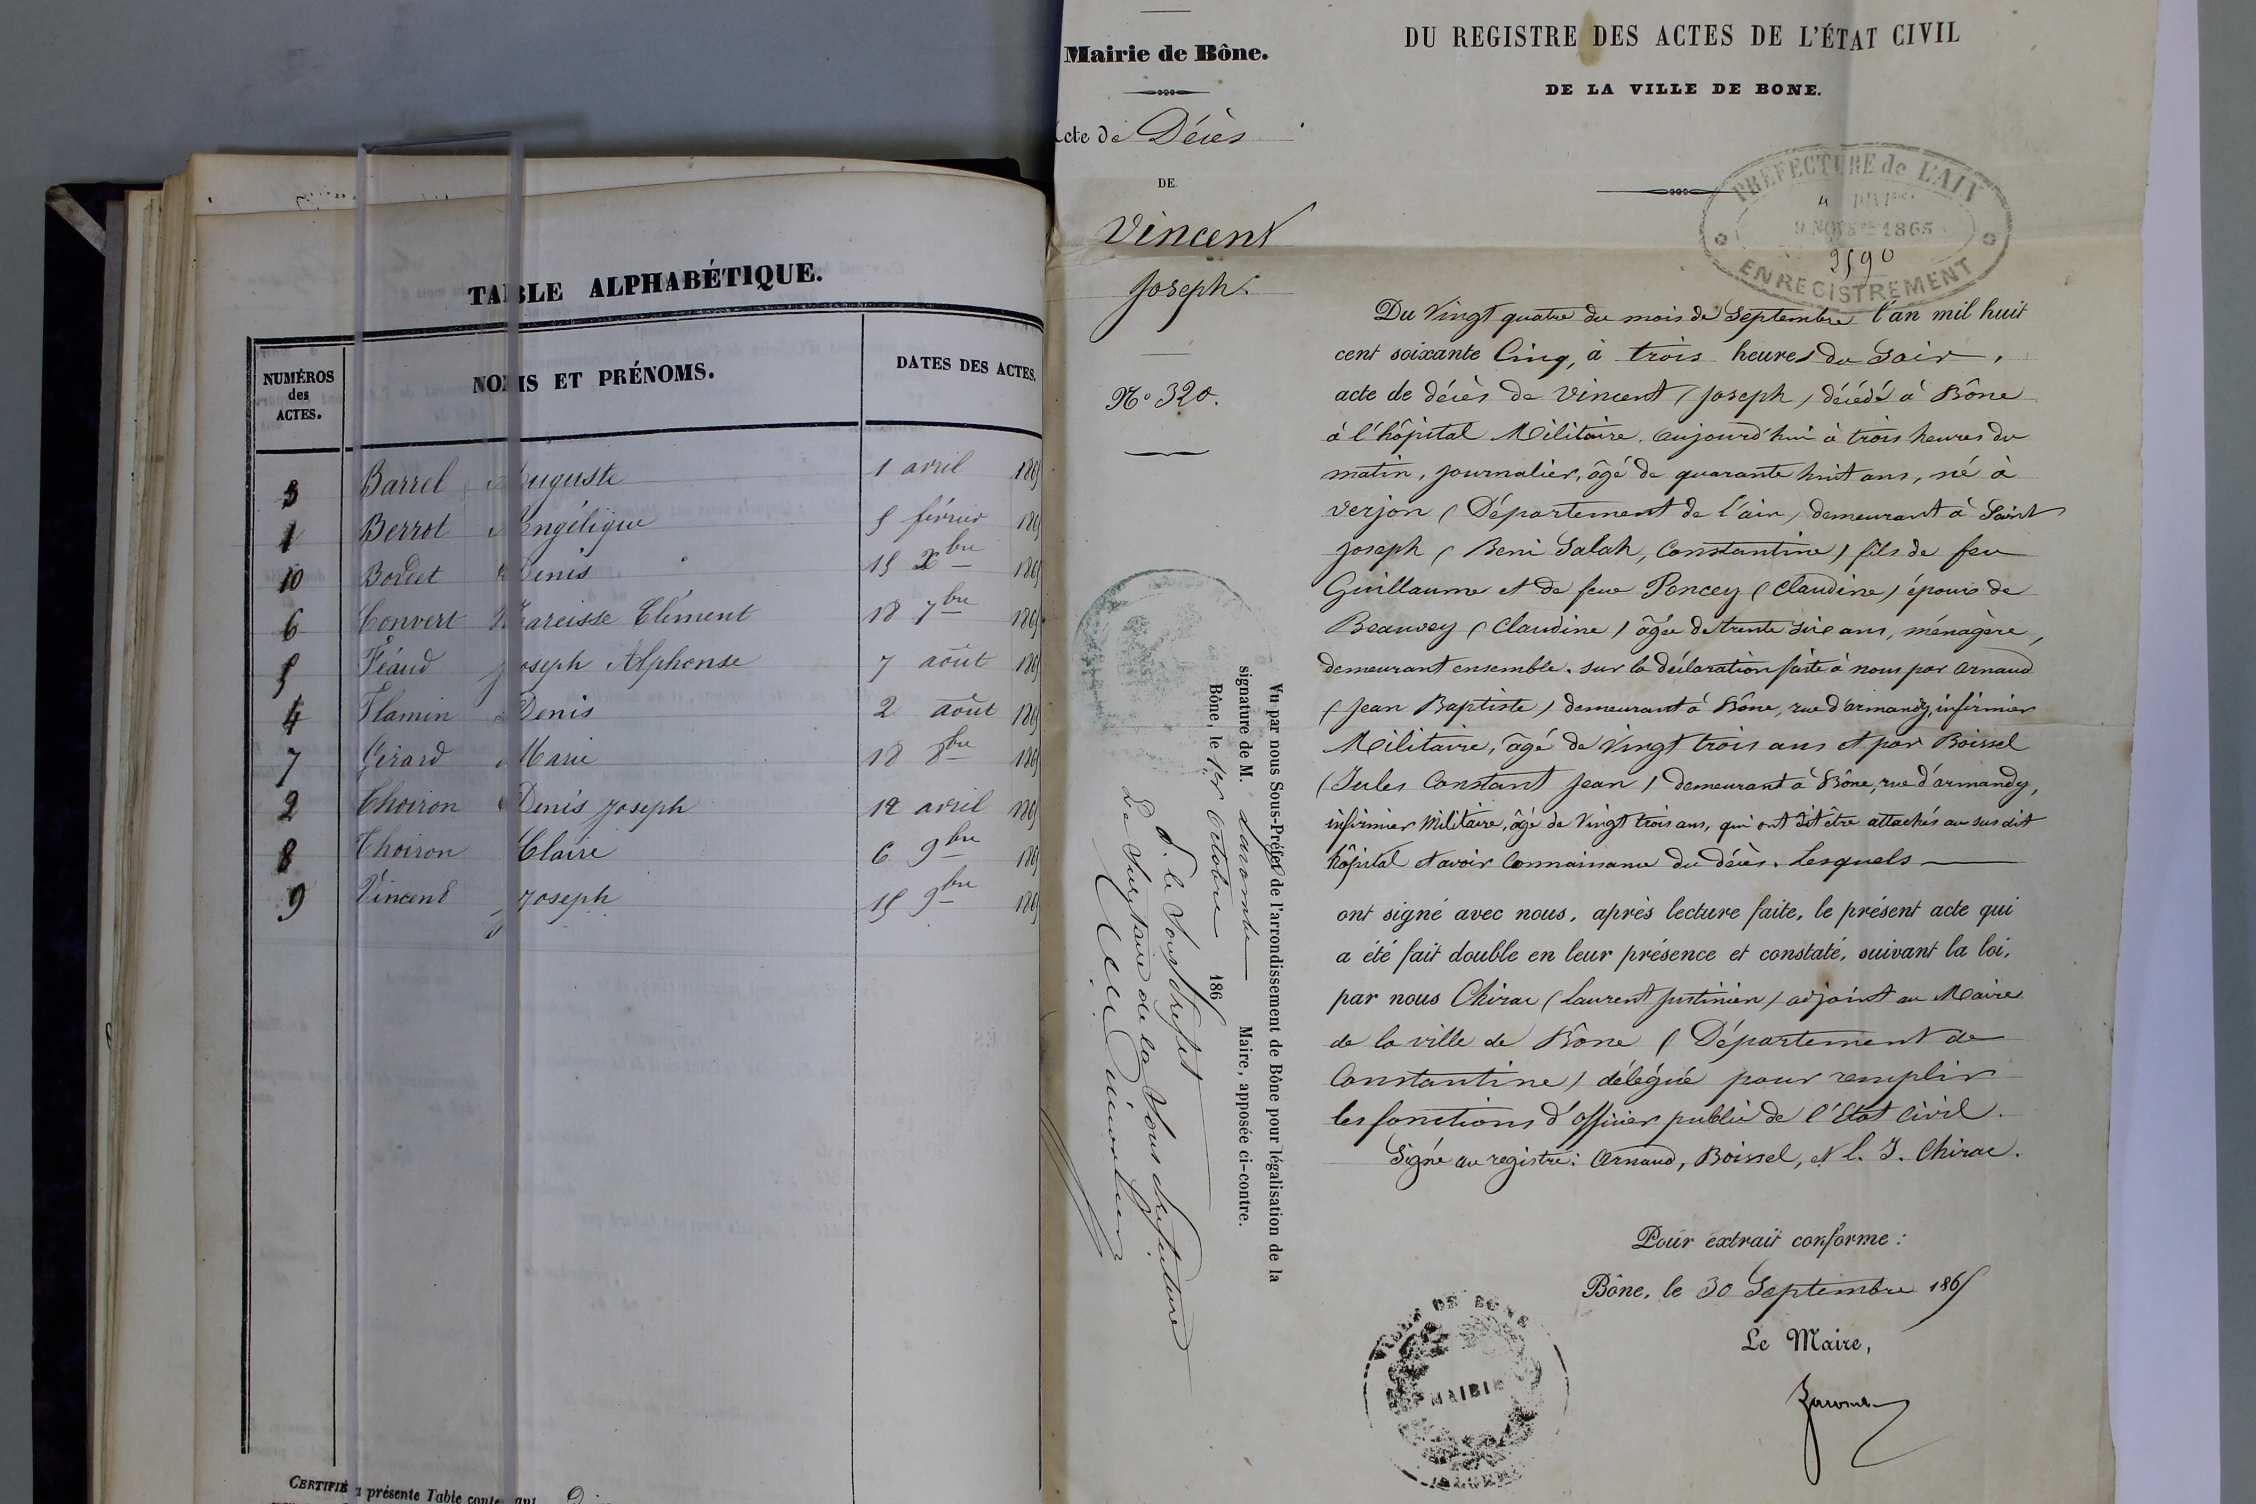 TABLE ALPHABÉTIQUE.
NUMÉROS des ACTES.
NOMS ET PRÉNOMS.
DATES DES ACTES.
3 Barrel Auguste 1 avril 1865
1 Berrot Angélique 5 février 1865
10 Bordet Denis 15 Xbre 1865
6 Convert Narcisse Clément 18 7bre 1865
5 Féaud Joseph Alphonse 7 août 1865
4 Flamin Denis 2 août 1865
7 Girard Marie 18 8bre 1865
2 Thoiron Denis Joseph 12 avril 1865
8 Thoiron Claire 6 9bre 1865
9 Vincent Joseph 15 9bre 1865
CERTIFIÉ présente Table
Mairie de Bône.
Acte de Décès
DE
Vincent
Joseph.
No 320.
Vu par nous Sous-Préfet de l'arrondissement de Bône pour légalisation de la
signature de M. Lacombe Maire, apposée ci-contre.
Bône, le 1er Octobre 1865
P. le Sous Préfet
Le Secrétaire de la Sous Préfecture
DU REGISTRE DES ACTES DE L'ÉTAT CIVIL
DE LA VILLE DE BONE.
PRÉFECTURE de L'AIN
4 DIVIon
9 NOVEMBRE 1865
2590
ENREGISTREMENT
Du Vingt quatre du mois de Septembre l'an mil huit
cent soixante Cinq, à trois heures du Soir,
acte de décès de Vincent (Joseph) décédé à Bône
à l'hôpital Militaire. aujourd'hui à trois heures du
matin, journalier, âgé de quarante huit ans, né à
Verjon (Département de l'ain) demeurant à Saint
Joseph (Beni Salah, Constantine) fils de feu
Guillaume et de feue Poncey (Claudine) époux de
Beauvey (Claudine) âgée de trente six ans, ménagère,
demeurant ensemble. Sur la déclaration faite à nous par Arnaud
(Jean Baptiste) demeurant à Bône, rue d'armandy, infirmier
Militaire, âgé de Vingt trois ans et par Boissel
(Jules Constant Jean) demeurant à Bône, rue d'armandy,
infirmier Militaire, âgé de Vingt trois ans, qui ont dit être attachés au susdit
hôpital et avoir Connaissance du décès. Lesquels
ont signé avec nous, après lecture faite, le présent acte qui
a été fait double en leur présence et constaté, suivant la loi,
par nous Chirac (Laurent Justinien) adjoint au Maire
de la ville de Bône (Département de
Constantine) délégué pour remplir
les fonctions d'officier public de l'Etat Civil.
Signé au registre: Arnaud, Boissel, et L. J. Chirac.
Pour extrait conforme :
Bône, le 30 Septembre 1865
Le Maire,
Lacombe
VILLE DE BONE
MAIRIE